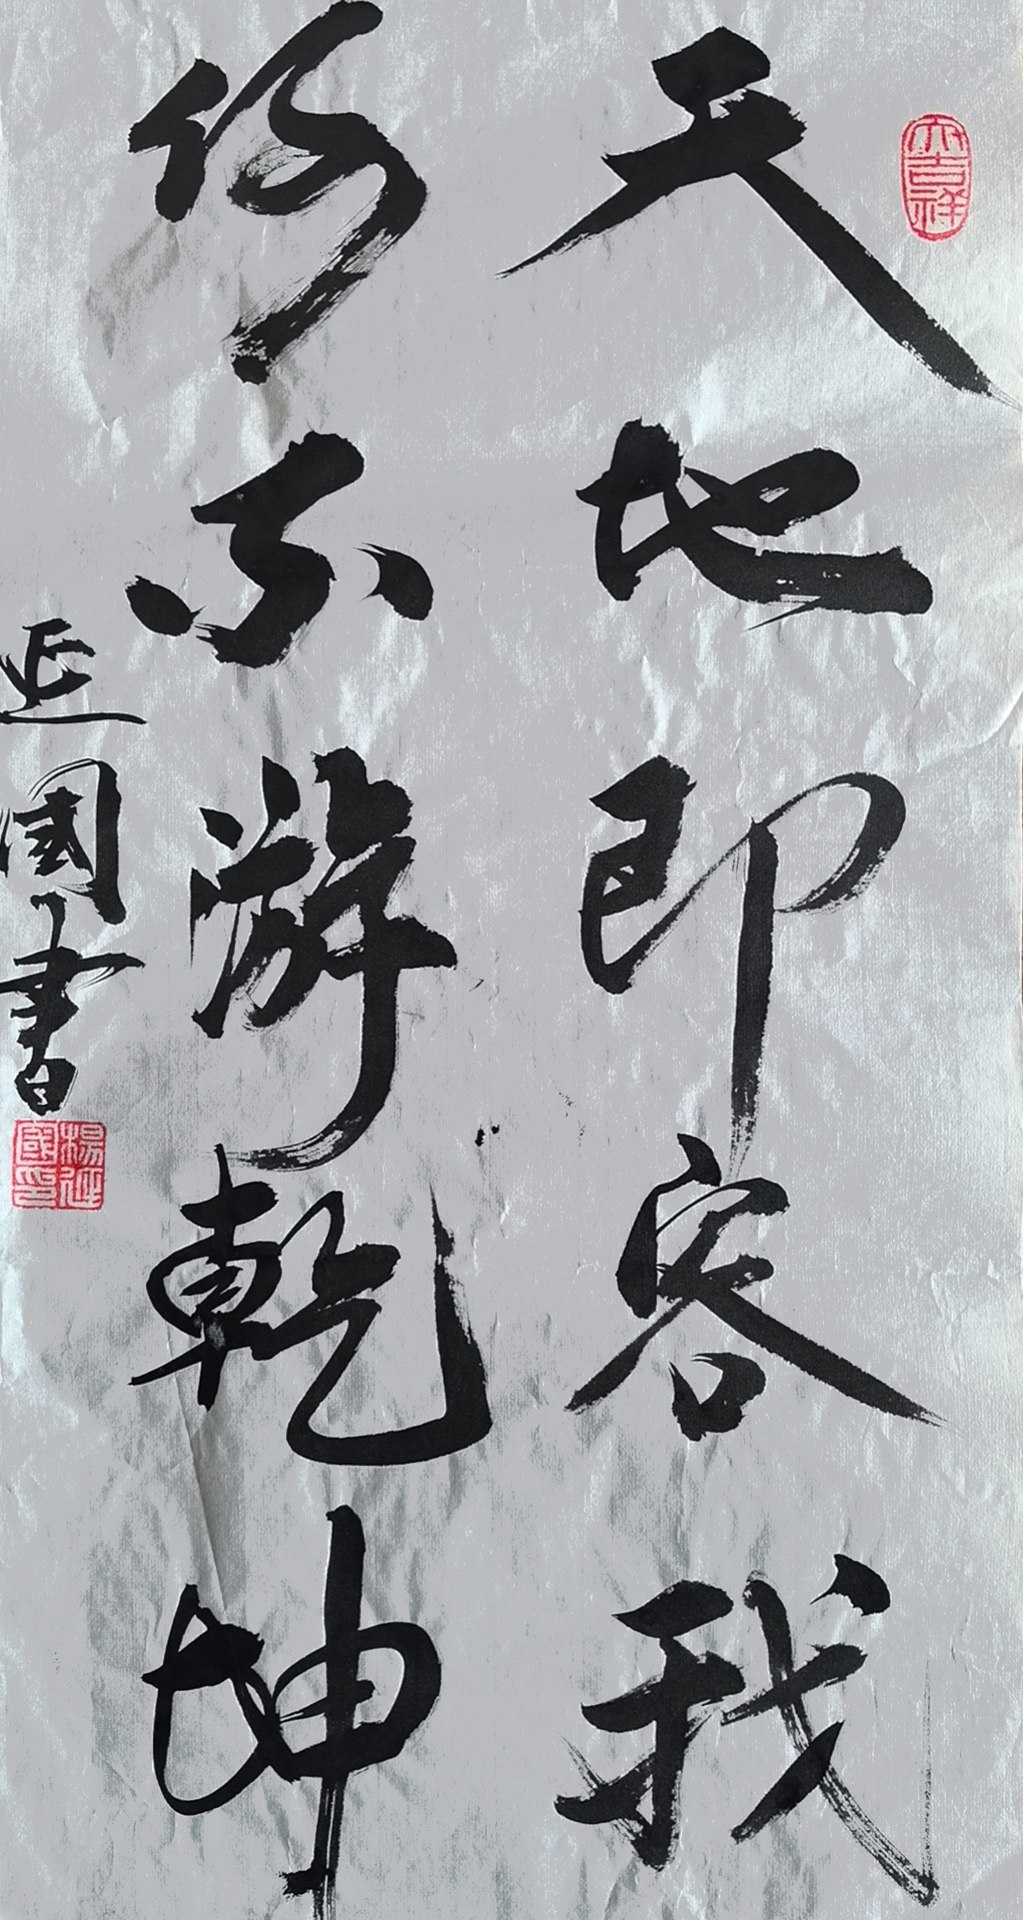 大吉祥
天地即容我
何不游乾坤
延國書
楊延國印